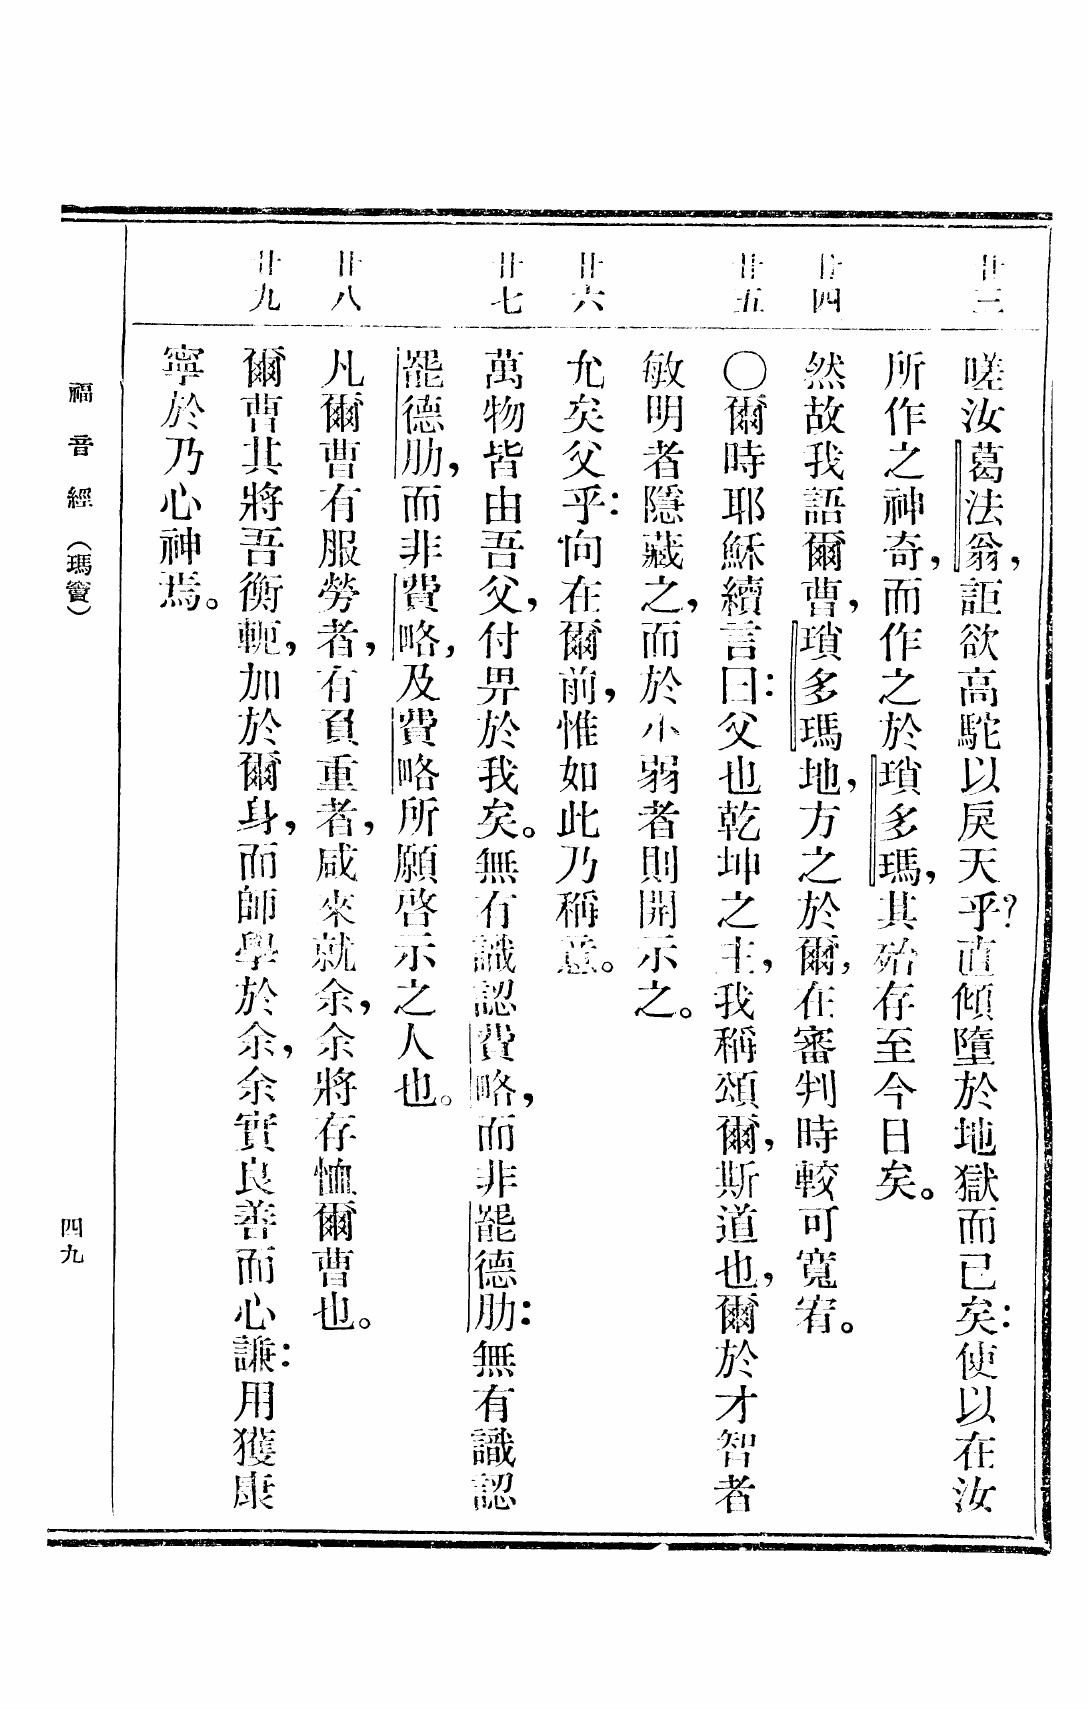 廿三
嗟汝葛法翁，詎欲高駝以戾天乎？直傾墮於地獄而已矣：使以在汝
所作之神奇，而作之於瑣多瑪，其殆存至今日矣。
廿四
然故我語爾曹，瑣多瑪地，方之於爾，在審判時較可寬宥。
廿五
〇爾時耶穌續言曰：父也乾坤之主，我稱頌爾，斯道也，爾於才智者
敏明者隱藏之，而於小弱者則開示之。
廿六
允矣父乎：向在爾前，惟如此乃稱意。
廿七
萬物皆由吾父，付畀於我矣。無有識認費略，而非罷德肋：無有識認
罷德肋，而非費略，及費略所願啓示之人也。
廿八
凡爾曹有服勞者，有負重者，咸來就余，余將存恤爾曹也。
廿九
爾曹其將吾衡軛，加於爾身，而師學於余，余實良善而心謙：用獲康
寧於乃心神焉。
福音經（瑪竇）
四九